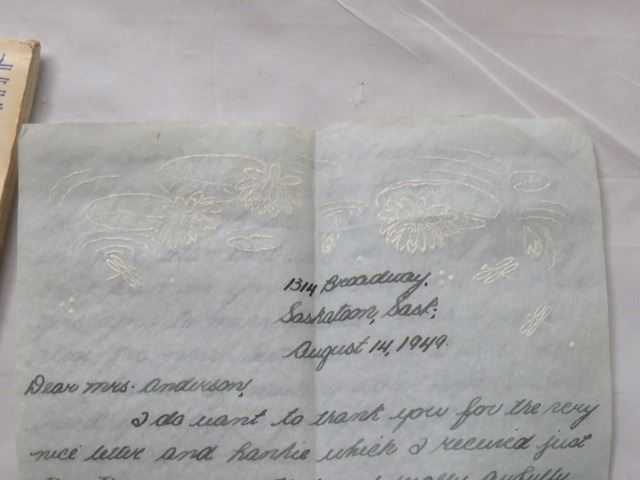 1314 Broadway.
Saskatoon, Sask;
August 14, 1949.
Dear mrs. Anderson,
I do want to thank you for the very
nice letter and hankie which I received just
awfully